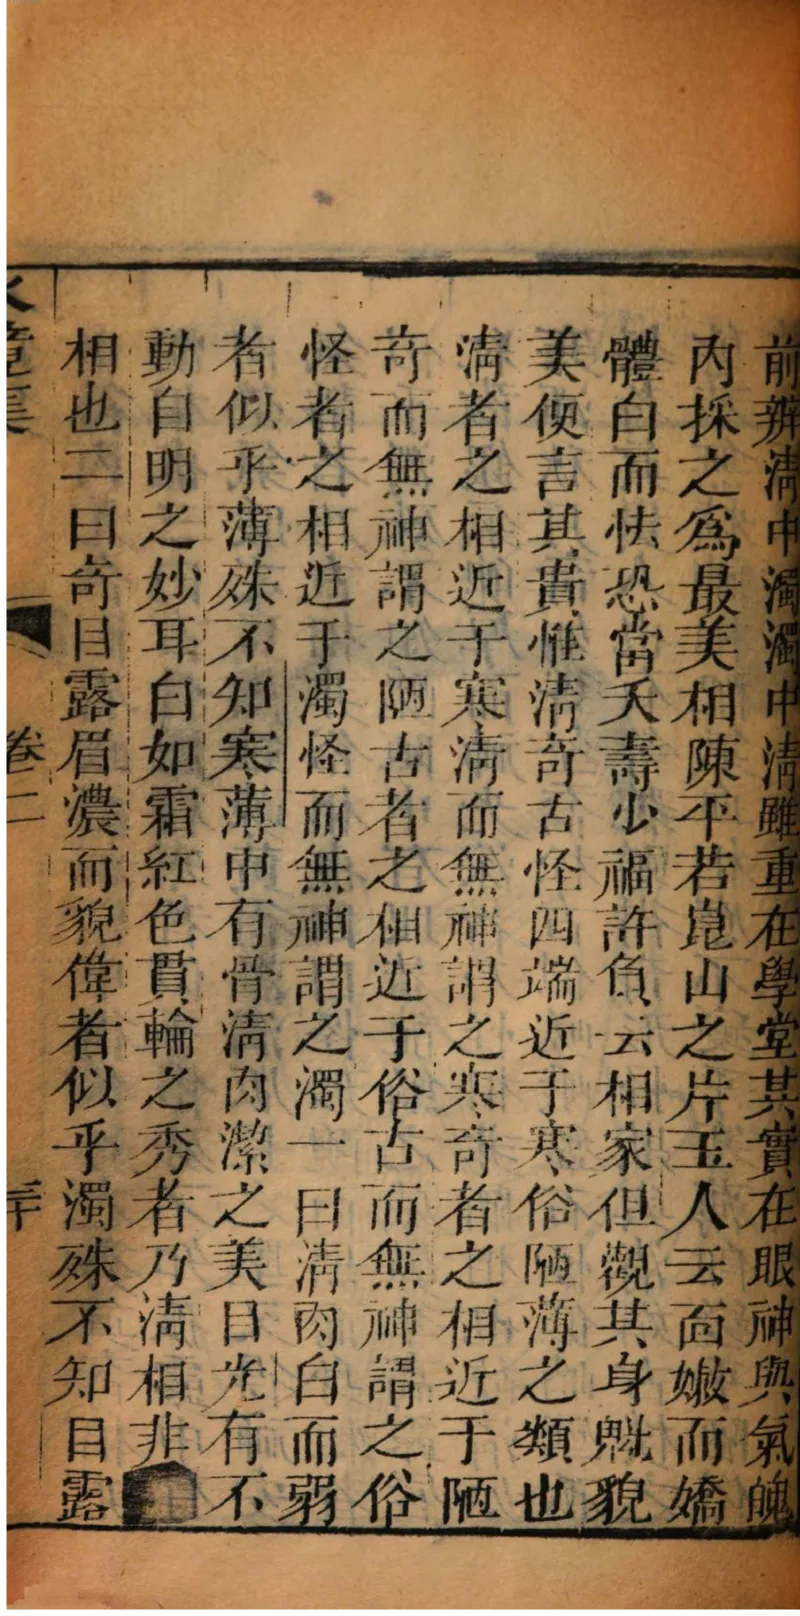 前辨淸中濁濁中淸雖重在學堂其實在眼神與氣魄
內採之爲最美相陳平若崑山之片玉人云面嫩而嬌
體白而怯恐當夭壽少福許負云相家但觀其身魁貌
美便言其貴惟淸奇古怪四端近于寒俗陋薄之類也
淸者之相近于寒淸而無神謂之寒奇者之相近于陋
奇而無神謂之陋古者之相近于俗古而無神謂之俗
怪者之相近于濁怪而無神謂之濁一曰淸肉白而弱
者似乎薄殊不知寒薄中有骨淸肉潔之美目光有不
動自明之妙耳白如霜紅色貫輪之秀者乃淸相非
相也二曰奇目露眉濃而貌偉者似乎濁殊不知目露
水鏡集 卷二 三十